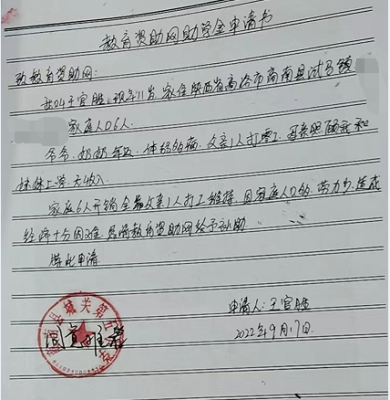 教育资助网助资金申请书
致教育资助网:
我叫王官胜,现年11岁 家住陕西省商洛市商南县试马镇
家庭人口6人.
爷爷、奶奶年迈、体弱多病,父亲1人打零工,母亲照顾我和
妹妹上学,无收入.
家庭6人开销全靠父亲1人打工维持.因家庭人口多,劳力少,造成
经济十分困难.恳请教育资助网给予补助.
特此申请
申请人:王官胜
2022年9月17日.
县城关第
同意